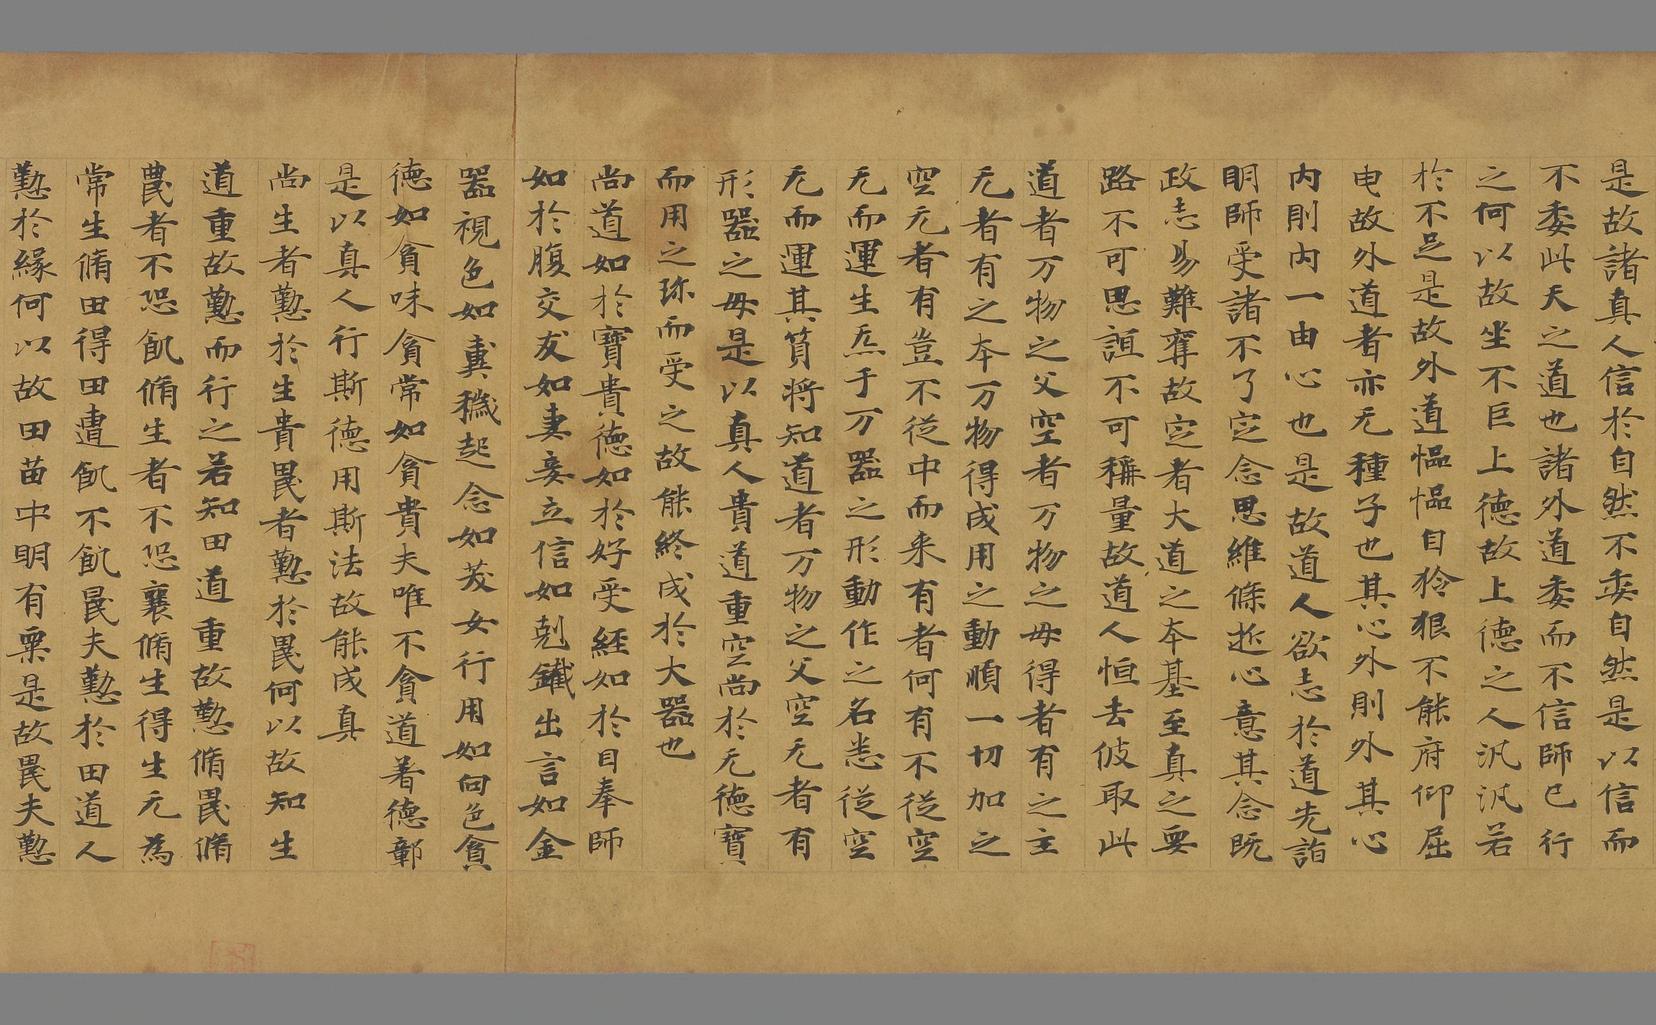 是故諸真人信於自然不委自然是以信而
不委此天之道也諸外道委而不信師已行
之何以故坐不巨上德故上德之人汎汎若
於不足是故外道愠愠自矜狠不能府仰屈
申故外道者亦无種子也其心外則外其心
内則内一由心也是故道人欲志於道先詣
明師受諸不了定念思維條近心意其念既
政志易難奪故定者大道之本基至真之要
路不可思誼不可稱量故道人恒去彼取此
道者万物之父空者万物之母得者有之主
无者有之本万物得成用之動順一切加之
空无者有豈不從中而来有者何有不從空
无而運生炁于万器之形動作之名悉從空
无而運其質將知道者万物之父空无者有
形器之母是以真人貴道重空尚於无德寶
而用之珎而受之故能終成於大器也
尚道如於寶貴德如於好受經如於目奉師
如於腹交友如妻妾立信如剋鐵出言如金
器視色如糞穢起念如茂女行用如向色貪
德如貪味貪常如貪貴夫唯不貪道着德彰
是以真人行斯德用斯法故能成真
尚生者懃於生貴農者懃於農何以故知生
道重故懃而行之若知田道重故懃脩農脩
農者不恐飢脩生者不恐襄脩生得生无為
常生脩田得田遭飢不飢農夫懃於田道人
懃於緣何以故田苗中明有粟是故農夫懃